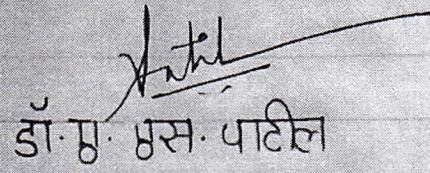 डॉ. ए. एस. पाटील